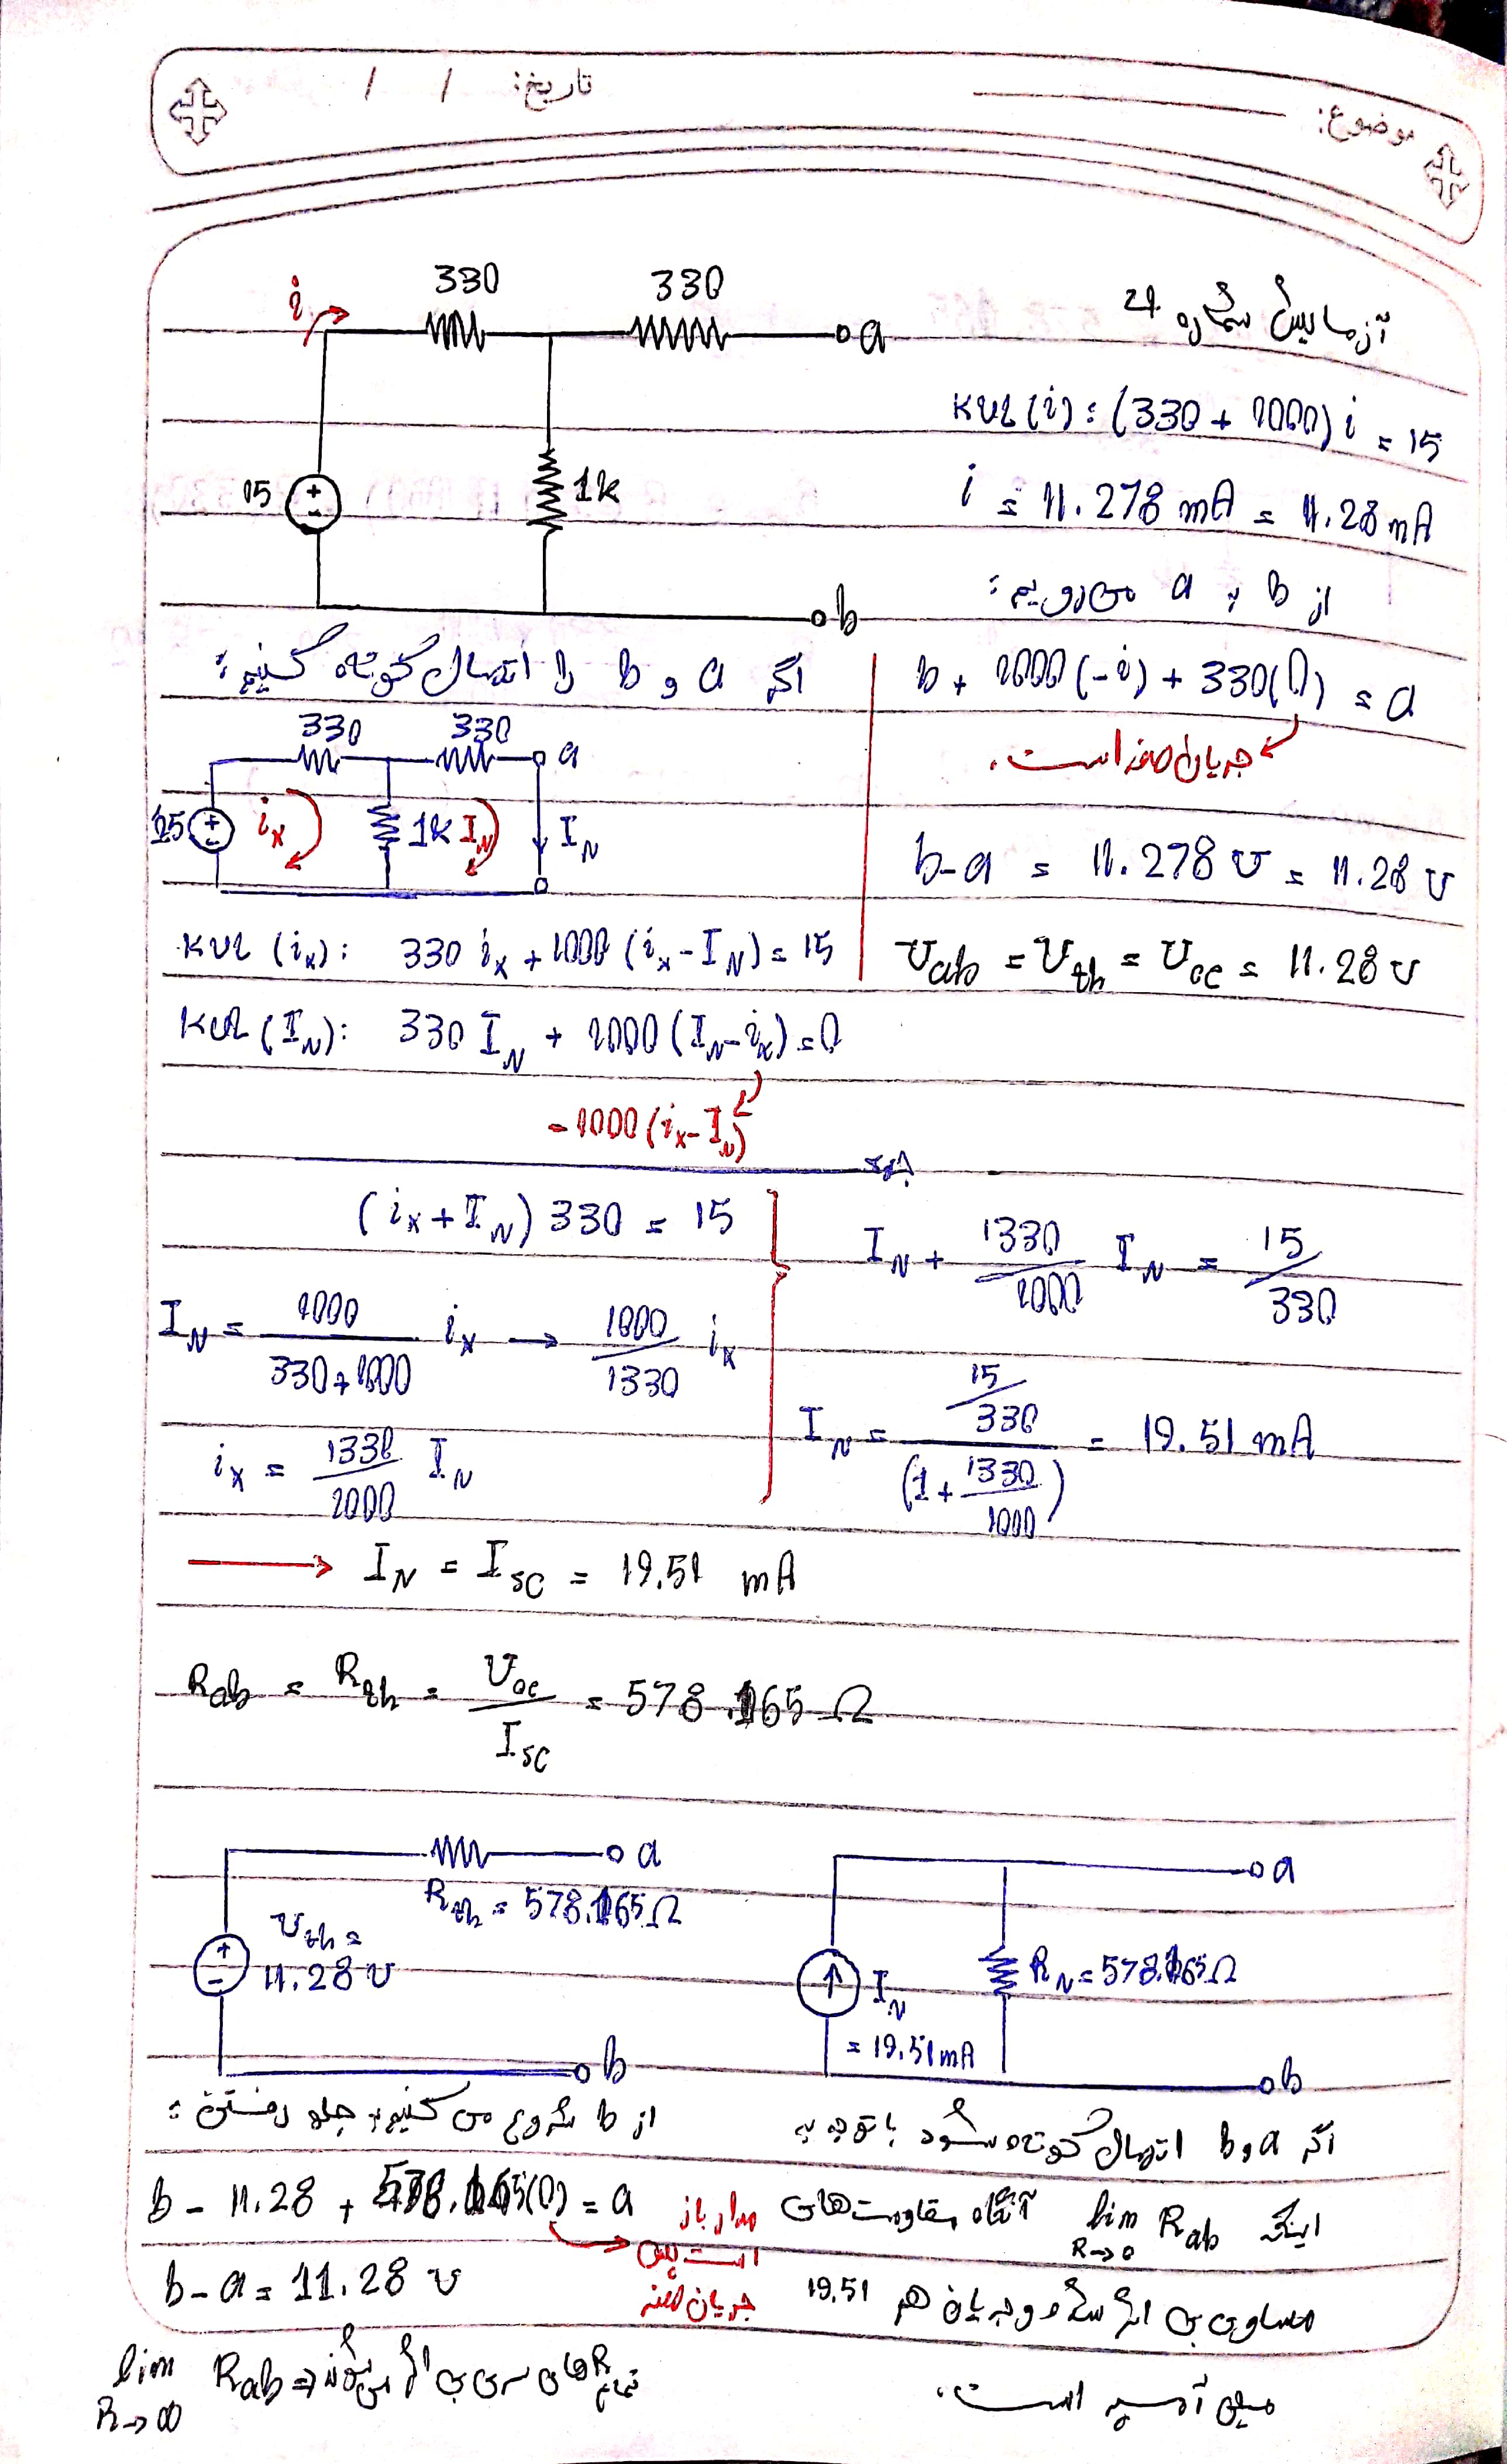 موضوع:
تاریخ: / /
آزمایش شماره 4
330 330
i
a
15
1k
b
KVL(i): (330 + 1000) i = 15
i = 11.278 mA = 11.28 mA
از b به a می رویم:
b + 1000(-i) + 330(0) = a
جریان صفر است.
b-a = 11.278 v = 11.28 v
Vab = Vth = Voc = 11.28 v
اگر a و b را اتصال کوتاه کنیم:
330 330
a
15
ix
1k
IN
IN
KVL (ix): 330 ix + 1000 (ix - IN) = 15
KVL (IN): 330 IN + 1000 (IN - ix) = 0
-1000 (ix - IN)
جمع
(ix + IN) 330 = 15
IN = 1000/(330+1000) ix → 1000/1330 ix
ix = 1330/1000 IN
IN + 1330/1000 IN = 15/330
IN = (15/330)/(1 + 1330/1000) = 19.51 mA
→ IN = Isc = 19.51 mA
Rab = Rth = Voc/Isc = 578.165 Ω
a
Rth = 578.165 Ω
Vth =
11.28 v
b
a
IN
= 19.51 mA
RN = 578.165 Ω
b
از b شروع می کنیم به جلو رفتن:
b - 11.28 + 578.165(0) = a
مدار باز
است پس
جریان صفر
b-a = 11.28 v
اگر a و b اتصال کوتاه شود با توجه به
اینکه lim R→0 Rab آنگاه مقاومت های
مساوی بی اثر شده و جریان هم 19.51
میلی آمپر است.
lim R→∞ Rab ⇒